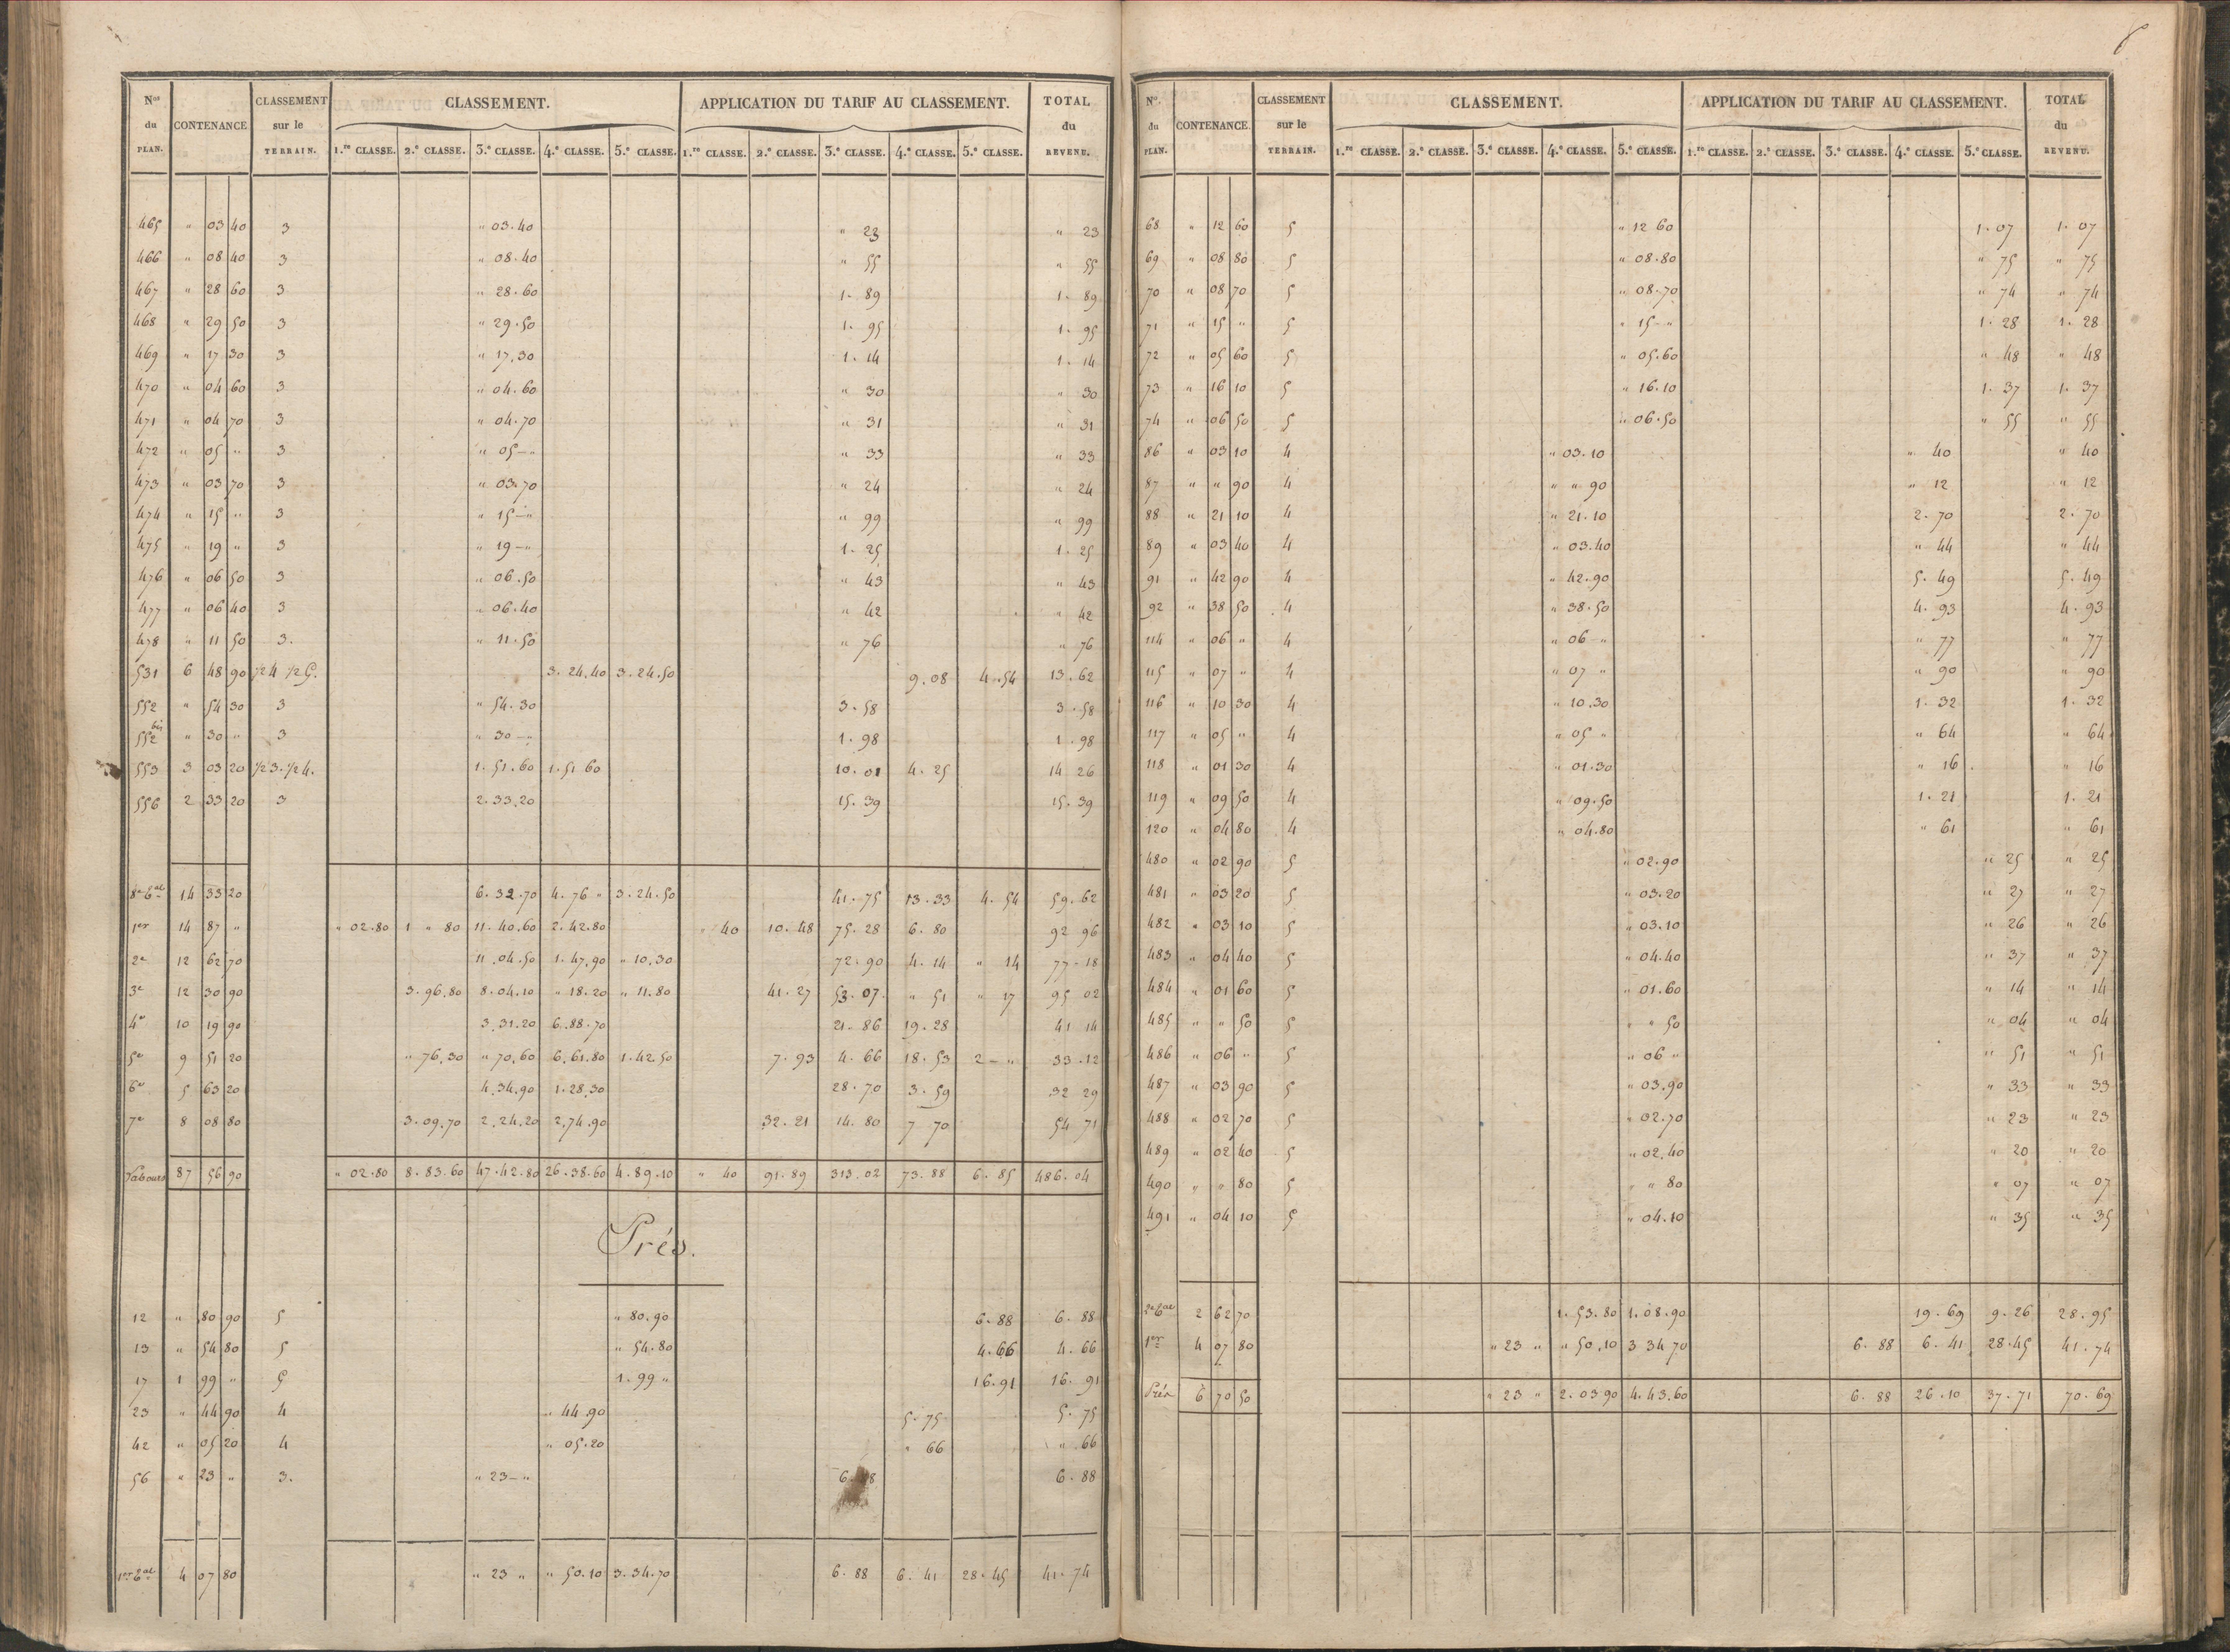 6
Nos du PLAN. CONTENANCE CLASSEMENT sur le TERRAIN. CLASSEMENT. APPLICATION DU TARIF AU CLASSEMENT. TOTAL du REVENU.
1.re CLASSE. 2.e CLASSE. 3.e CLASSE. 4.e CLASSE. 5.e CLASSE. 1.re CLASSE. 2.e CLASSE. 3.e CLASSE. 4.e CLASSE. 5.e CLASSE.
465 " 03 40 3 " 03.40 " 23 " 23
466 " 08 40 3 " 08.40 " 55 " 55
467 " 28 60 3 " 28.60 1. 89 1. 89
468 " 29 50 3 " 29.50 1. 95 1. 95
469 " 17 30 3 " 17.30 1. 14 1. 14
470 " 04 60 3 " 04.60 " 30 " 30
471 " 04 70 3 " 04.70 " 31 " 31
472 " 05 " 3 " 05-" " 33 " 33
473 " 03 70 3 " 03.70 " 24 " 24
474 " 15 " 3 " 15-" " 99 " 99
475 " 19 " 3 " 19-" 1. 25 1. 25
476 " 06 50 3 " 06.50 " 43 " 43
477 " 06 40 3 " 06.40 " 42 " 42
478 " 11 50 3. " 11.50 " 76 " 76
531 6 48 90 1/2 4 1/2 5. 3. 24.40 3. 24.50 9. 08 4. 54 13. 62
552 " 54 30 3 " 54.30 3. 58 3. 58
552 bis " 30 " 3 " 30-" 1. 98 1. 98
553 3 03 20 1/2 3. 1/2 4. 1. 51.60 1. 51 60 10. 01 4. 25 14 26
556 2 33 20 3 2. 33.20 15. 39 15. 39
8e Cal 14 33 20 6. 32.70 4. 76 " 3. 24.50 41. 75 13. 33 4. 54 59. 62
1er 14 87 " " 02.80 1 " 80 11. 40.60 2. 42.80 " 40 10. 48 75. 28 6. 80 92 96
2e 12 62 70 11. 04.50 1. 47.90 " 10.30 72. 90 4. 14 " 14 77. 18
3e 12 30 90 3. 96.80 8. 04.10 " 18.20 " 11.80 41. 27 53. 07. " 51 " 17 95 02
4e 10 19 90 3. 31.20 6. 88.70 21. 86 19. 28 41 14
5e 9 51 20 " 76.30 " 70.60 6. 61.80 1. 42.50 7. 93 4. 66 18. 53 2-" 33. 12
6e 5 63 20 4. 34.90 1. 28.30 28. 70 3. 59 32 29
7e 8 08 80 3. 09.70 2. 24.20 2. 74.90 32. 21 14. 80 7 70 54 71
Labours 87 56 90 " 02.80 8. 83.60 47. 42.80 26. 38.60 4. 89.10 " 40 91. 89 313. 02 73. 88 6. 85 486. 04
Prés.
12 " 80 90 5 " 80.90 6. 88 6. 88
13 " 54 80 5 " 54.80 4. 66 4. 66
17 1 99 " 5 1. 99 " 16. 91 16. 91
23 " 44 90 4 " 44.90 5. 75 5. 75
42 " 05 20 4 " 05.20 " 66 " 66
56 " 23 " 3. " 23-" 6. 88
1er Cal 4 07 80 " 23 " " 50.10 3. 34.70 6. 88 6. 41 28. 45 41. 74
Nos du PLAN. CONTENANCE. CLASSEMENT sur le TERRAIN. CLASSEMENT. APPLICATION DU TARIF AU CLASSEMENT. TOTAL du REVENU.
1.re CLASSE. 2.e CLASSE. 3.e CLASSE. 4.e CLASSE. 5.e CLASSE. 1.re CLASSE. 2.e CLASSE. 3.e CLASSE. 4.e CLASSE. 5.e CLASSE.
68 " 12 60 5 " 12 60 1. 07 1. 07
69 " 08 80 5 " 08.80 " 75 " 75
70 " 08 70 5 " 08.70 " 74 " 74
71 " 15 " 5 " 15-" 1. 28 1. 28
72 " 05 60 5 " 05.60 " 48 " 48
73 " 16 10 5 " 16.10 1. 37 1. 37
74 " 06 50 5 " 06.50 " 55 " 55
86 " 03 10 4 " 03.10 " 40 " 40
87 " " 90 4 " " 90 " 12 " 12
88 " 21 10 4 " 21.10 2. 70 2. 70
89 " 03 40 4 " 03.40 " 44 " 44
91 " 42 90 4 " 42.90 5. 49 5. 49
92 " 38 50 4 " 38.50 4. 93 4. 93
114 " 06 " 4 " 06 " " 77 " 77
115 " 07 " 4 " 07 " " 90 " 90
116 " 10 30 4 " 10.30 1. 32 1. 32
117 " 05 " 4 " 05 " " 64 " 64
118 " 01 30 4 " 01.30 " 16 " 16
119 " 09 50 4 " 09.50 1. 21 1. 21
120 " 04 80 4 " 04.80 " 61 " 61
480 " 02 90 5 " 02.90 " 25 " 25
481 " 03 20 5 " 03.20 " 27 " 27
482 " 03 10 5 " 03.10 " 26 " 26
483 " 04 40 5 " 04.40 " 37 " 37
484 " 01 60 5 " 01.60 " 14 " 14
485 " " 50 5 " " 50 " 04 " 04
486 " 06 " 5 " 06 " " 51 " 51
487 " 03 90 5 " 03.90 " 33 " 33
488 " 02 70 5 " 02.70 " 23 " 23
489 " 02 40 5 " 02.40 " 20 " 20
490 " " 80 5 " " 80 " 07 " 07
491 " 04 10 5 " 04.10 " 35 " 35
2e Cal 2 62 70 1. 53.80 1. 08.90 19. 69 9. 26 28. 95
1er 4 07 80 " 23 " " 50.10 3 34 70 6. 88 6. 41 28. 45 41. 74
Prés 6 70 50 " 23 " 2. 03 90 4. 43.60 6. 88 26. 10 37. 71 70. 69